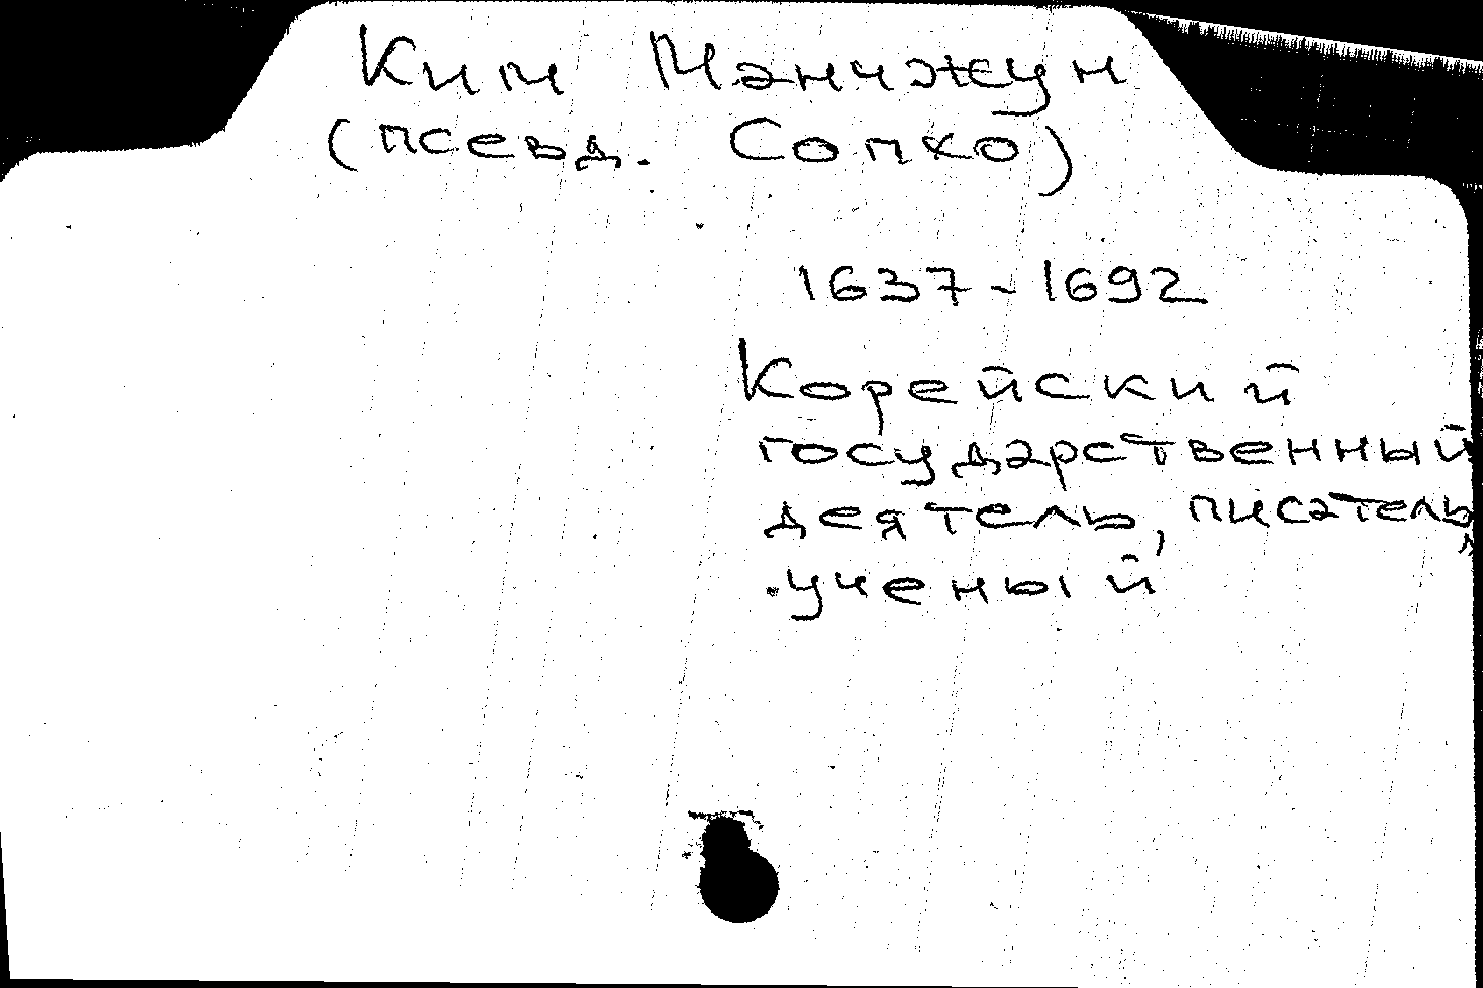 Ким Манчжун
(псевд. Сопко)
1637-1692
Корейский
государственный
деятель, писатель,
ученый